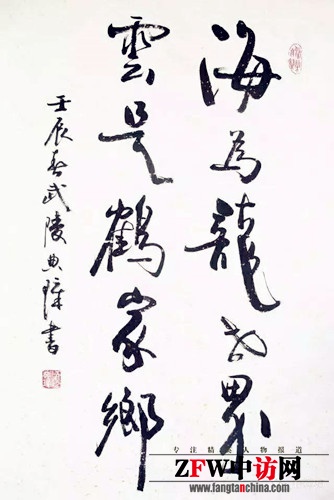 海为龍世界
雲是鶴家鄉
壬辰春武陵典璋書
专注精英人物报道
ZFW中访网
www.fangtanchina.com